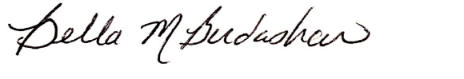 Bella M Burdashaw